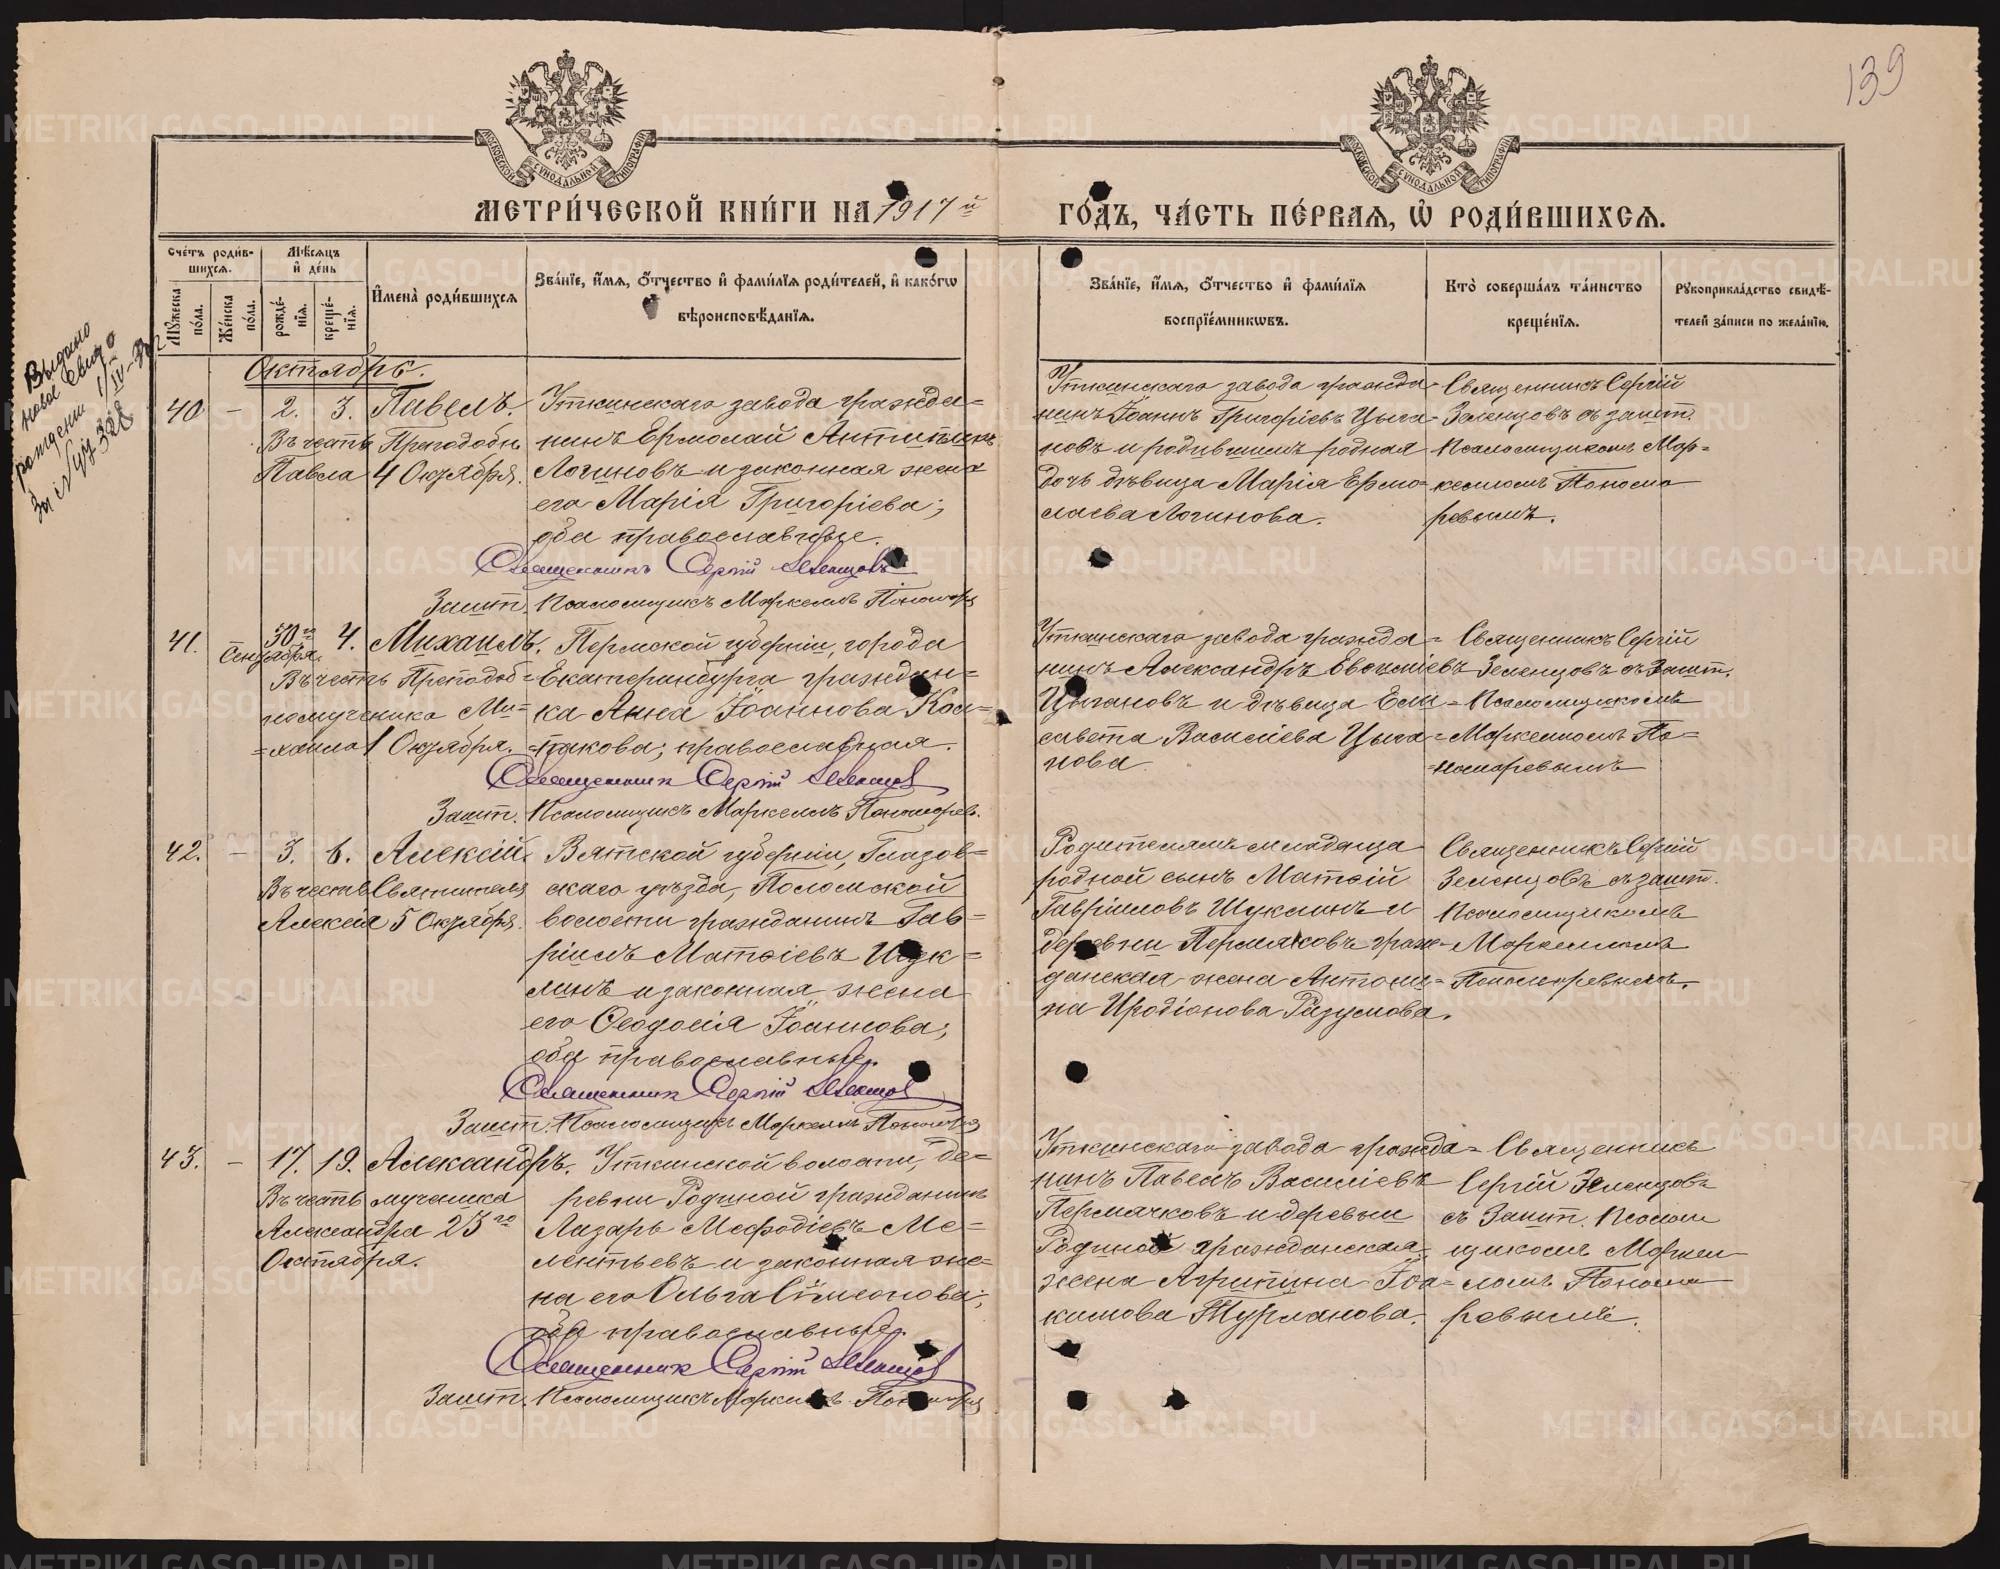 139
МОСКОВСКОЙ СѴНОДАЛЬНОЙ ТИПОГРАФІИ
МОСКОВСКОЙ СѴНОДАЛЬНОЙ ТИПОГРАФІИ
МЕТРИ́ЧЕСКОЙ КНИ́ГИ НА 1917й ГО́ДЪ, ЧА́СТЬ ПЕ́РВАЯ, Ѡ҆ РОДИ́ВШИХСЯ.
Сче́тъ роди́в-
шихся.
Му́жеска по́ла.
Же́нска по́ла.
Мѣ́сяцъ
и҆ де́нь
рожде́-
нїя.
креще́-
нїя.
И҆мена̀ роди́вшихся
Зва́нїе, и҆́мя, ѻ҆́тчество и҆ фами́лїя роди́телей, и҆ како́гѡ
вѣроисповѣ́данїя.
Зва́нїе, и҆́мя, ѻ҆́тчество и҆ фами́лїя
воспрїе́мникѡвъ.
Кто̀ соверша́лъ та́инство
креще́нїя.
Рукоприкла́дство свидѣ́-
телей за́писи по жела́нїю.
Выдано
ново Свид о
рождении 1/IV
за № 328
Октябрь.
40 – 2. 3. Павелъ.
Въ честь Преподобн.
Павла 4 Октября.
Уткинскаго завода гражда=
нинъ Ермолай Антипьевъ
Логиновъ и законная жена
его Марія Григоріева;
оба православные.
Священникъ Сергій Зеленцовъ
Зашт. Псаломщикъ Маркеллъ Пономарев
Уткинскаго завода гражда=
нинъ Іоаннъ Григоріевъ Цыга=
новъ и родившимъ родная
дочь дѣвица Марія Ермо=
лаева Логинова.
Священникъ Сергій
Зеленцовъ съ зашт.
Псаломщикомъ Мар=
келломъ Понома
ревымъ.
41. 30го Сентября. 4. Михаилъ.
Въ честь Преподоб=
номученика Ми=
=хаила 1 Октября.
Пермской губерніи, города
Екатеринбурга граждан=
ка Анна Іоаннова Кол=
=пакова; православная.
Священник Сергій Зеленцов
Зашт. Псаломщикъ Маркеллъ Пономарев.
Уткинскаго завода гражда=
нинъ Александръ Евѳиміевъ
Цыгановъ и дѣвица Ели=
савета Василіева Цыга=
нова.
Священникъ Сергій
Зеленцовъ съ Зашт.
Псаломщикомъ
Маркелломъ По=
=номаревымъ
42. – 3. 6. Алексій.
Въ честь Святителя
Алексія 5 Октября.
Вятской губерніи, Глазов=
скаго уѣзда, Поломской
волости гражданинъ Гав=
ріилъ Матѳіевъ Шук=
линъ и законная жена
его Ѳеодосія Іоаннова;
оба православные.
Священник Сергій Зеленцов
Зашт. Псаломщикъ Маркеллъ Пономарев
Родителямъ младенца
родной сынъ Матѳій
Гавріиловъ Шуклинъ и
деревни Пермяковъ граж=
данская жена Антони=
на Иродіонова Разумова.
Священникъ Сергій
Зеленцовъ съ зашт.
Псаломщикомъ
Маркелломъ
Пономаревымъ.
43. – 17. 19. Александръ.
Въ честь мученика
Александра 23го
Октября.
Уткинской волости, де=
ревни Родиной гражданинъ
Лазарь Меѳодіевъ Ме=
лентьевъ и законная же=
на его Ольга Сѵмеонова;
оба православные.
Священник Сергій Зеленцов
Зашт. Псаломщикъ Маркеллъ Пономарев
Уткинскаго завода гражда=
нинъ Павелъ Василіевъ
Пермячковъ и деревни
Родиной гражданская
жена Агрипина Іоа=
кимова Турланова.
Священникъ
Сергій Зеленцовъ
съ Зашт. Псалом
щикомъ Маркел
ломъ Понома
ревымъ.
METRIKI.GASO-URAL.RU